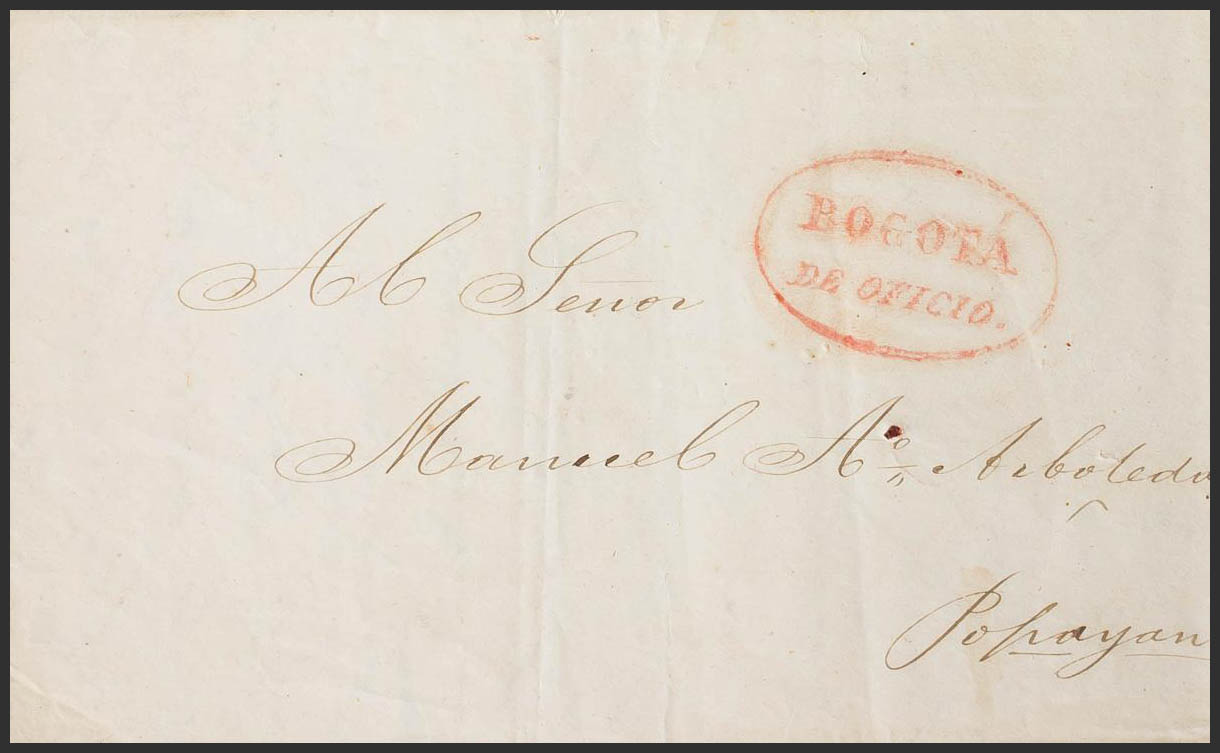 BOGOTÁ
DE OFICIO.
Al Señor
Manuel Aº Arboleda
Popayan